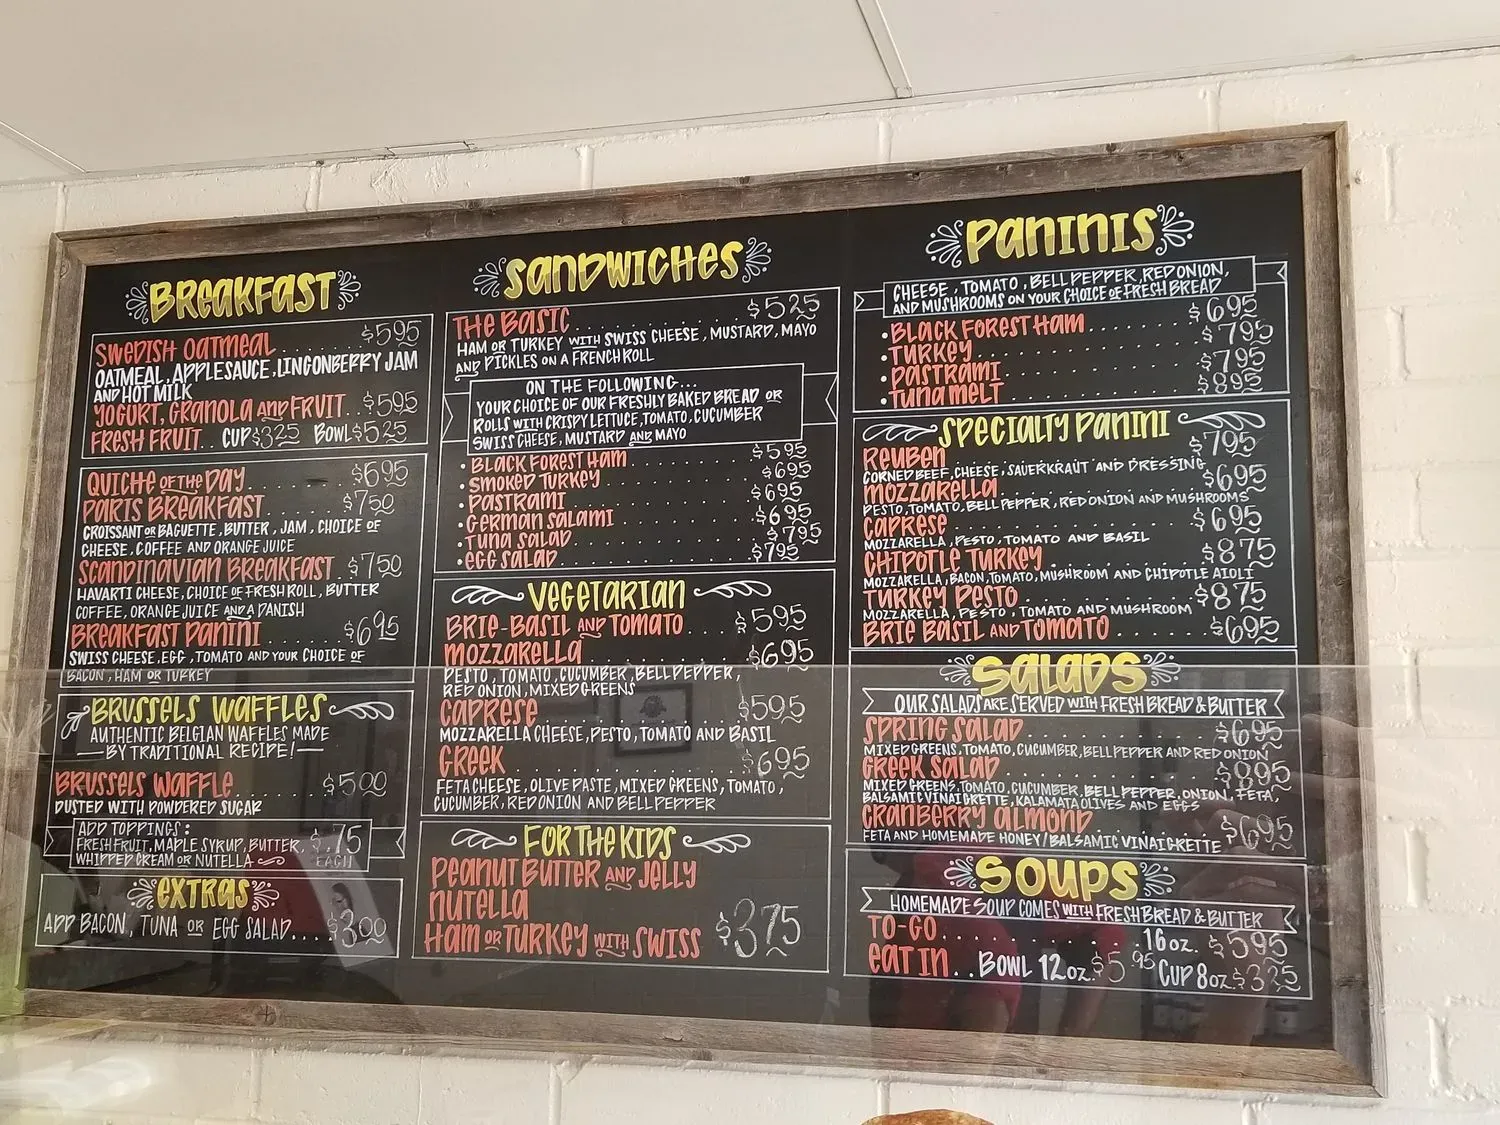 BREAKFAST
SWEDISH OATMEAL $5.95
OATMEAL, APPLESAUCE, LINGONBERRY JAM
AND HOT MILK
YOGURT, GRANOLA AND FRUIT.. $5.95
FRESH FRUIT.. CUP $3.25 BOWL $5.25
QUICHE OF THE DAY $6.95
PARIS BREAKFAST $7.50
CROISSANT OR BAGUETTE, BUTTER, JAM, CHOICE OF
CHEESE, COFFEE AND ORANGE JUICE
SCANDINAVIAN BREAKFAST. $7.50
HAVARTI CHEESE, CHOICE OF FRESH ROLL, BUTTER
COFFEE, ORANGE JUICE AND A DANISH
BREAKFAST PANINI $6.95
SWISS CHEESE, EGG, TOMATO AND YOUR CHOICE OF
BACON, HAM OR TURKEY
BRUSSELS WAFFLES
AUTHENTIC BELGIAN WAFFLES MADE
BY TRADITIONAL RECIPE!
BRUSSELS WAFFLE $5.00
DUSTED WITH POWDERED SUGAR
ADD TOPPINGS:
FRESH FRUIT, MAPLE SYRUP, BUTTER, $.75
WHIPPED CREAM OR NUTELLA EACH
EXTRAS
ADD BACON, TUNA OR EGG SALAD.... $3.00
SANDWICHES
THE BASIC $5.25
HAM OR TURKEY WITH SWISS CHEESE, MUSTARD, MAYO
AND PICKLES ON A FRENCH ROLL
ON THE FOLLOWING...
YOUR CHOICE OF OUR FRESHLY BAKED BREAD OR
ROLLS WITH CRISPY LETTUCE, TOMATO, CUCUMBER
SWISS CHEESE, MUSTARD AND MAYO
• BLACK FOREST HAM $5.95
• SMOKED TURKEY $6.95
• PASTRAMI $6.95
• GERMAN SALAMI $6.95
• TUNA SALAD $7.95
• EGG SALAD $7.95
VEGETARIAN
BRIE-BASIL AND TOMATO $5.95
MOZZARELLA $6.95
PESTO, TOMATO, CUCUMBER, BELL PEPPER,
RED ONION, MIXED GREENS
CAPRESE $5.95
MOZZARELLA CHEESE, PESTO, TOMATO AND BASIL
GREEK $6.95
FETA CHEESE, OLIVE PASTE, MIXED GREENS, TOMATO,
CUCUMBER, RED ONION AND BELL PEPPER
FOR THE KIDS
PEANUT BUTTER AND JELLY
NUTELLA
HAM OR TURKEY WITH SWISS $3.75
PANINIS
CHEESE, TOMATO, BELL PEPPER, RED ONION,
AND MUSHROOMS ON YOUR CHOICE OF FRESH BREAD
• BLACK FOREST HAM $6.95
• TURKEY $7.95
• PASTRAMI $7.95
• TUNA MELT $8.95
SPECIALTY PANINI
REUBEN $7.95
CORNED BEEF, CHEESE, SAUERKRAUT AND DRESSING
MOZZARELLA $6.95
PESTO, TOMATO, BELL PEPPER, RED ONION AND MUSHROOMS
CAPRESE $6.95
MOZZARELLA, PESTO, TOMATO AND BASIL
CHIPOTLE TURKEY $8.75
MOZZARELLA, BACON, TOMATO, MUSHROOM AND CHIPOTLE AIOLI
TURKEY PESTO $8.75
MOZZARELLA, PESTO, TOMATO AND MUSHROOM
BRIE BASIL AND TOMATO $6.95
SALADS
OUR SALADS ARE SERVED WITH FRESH BREAD & BUTTER
SPRING SALAD $6.95
MIXED GREENS, TOMATO, CUCUMBER, BELL PEPPER AND RED ONION
GREEK SALAD
MIXED GREENS, TOMATO, CUCUMBER, BELL PEPPER, ONION, FETA,
BALSAMIC VINAIGRETTE, KALAMATA OLIVES AND EGGS
CRANBERRY ALMOND $6.95
FETA AND HOMEMADE HONEY/BALSAMIC VINAIGRETTE
SOUPS
HOMEMADE SOUP COMES WITH FRESH BREAD & BUTTER
TO-GO 16 OZ. $5.95
EAT IN.. BOWL 12 OZ. $5.95 CUP 8 OZ. $3.25